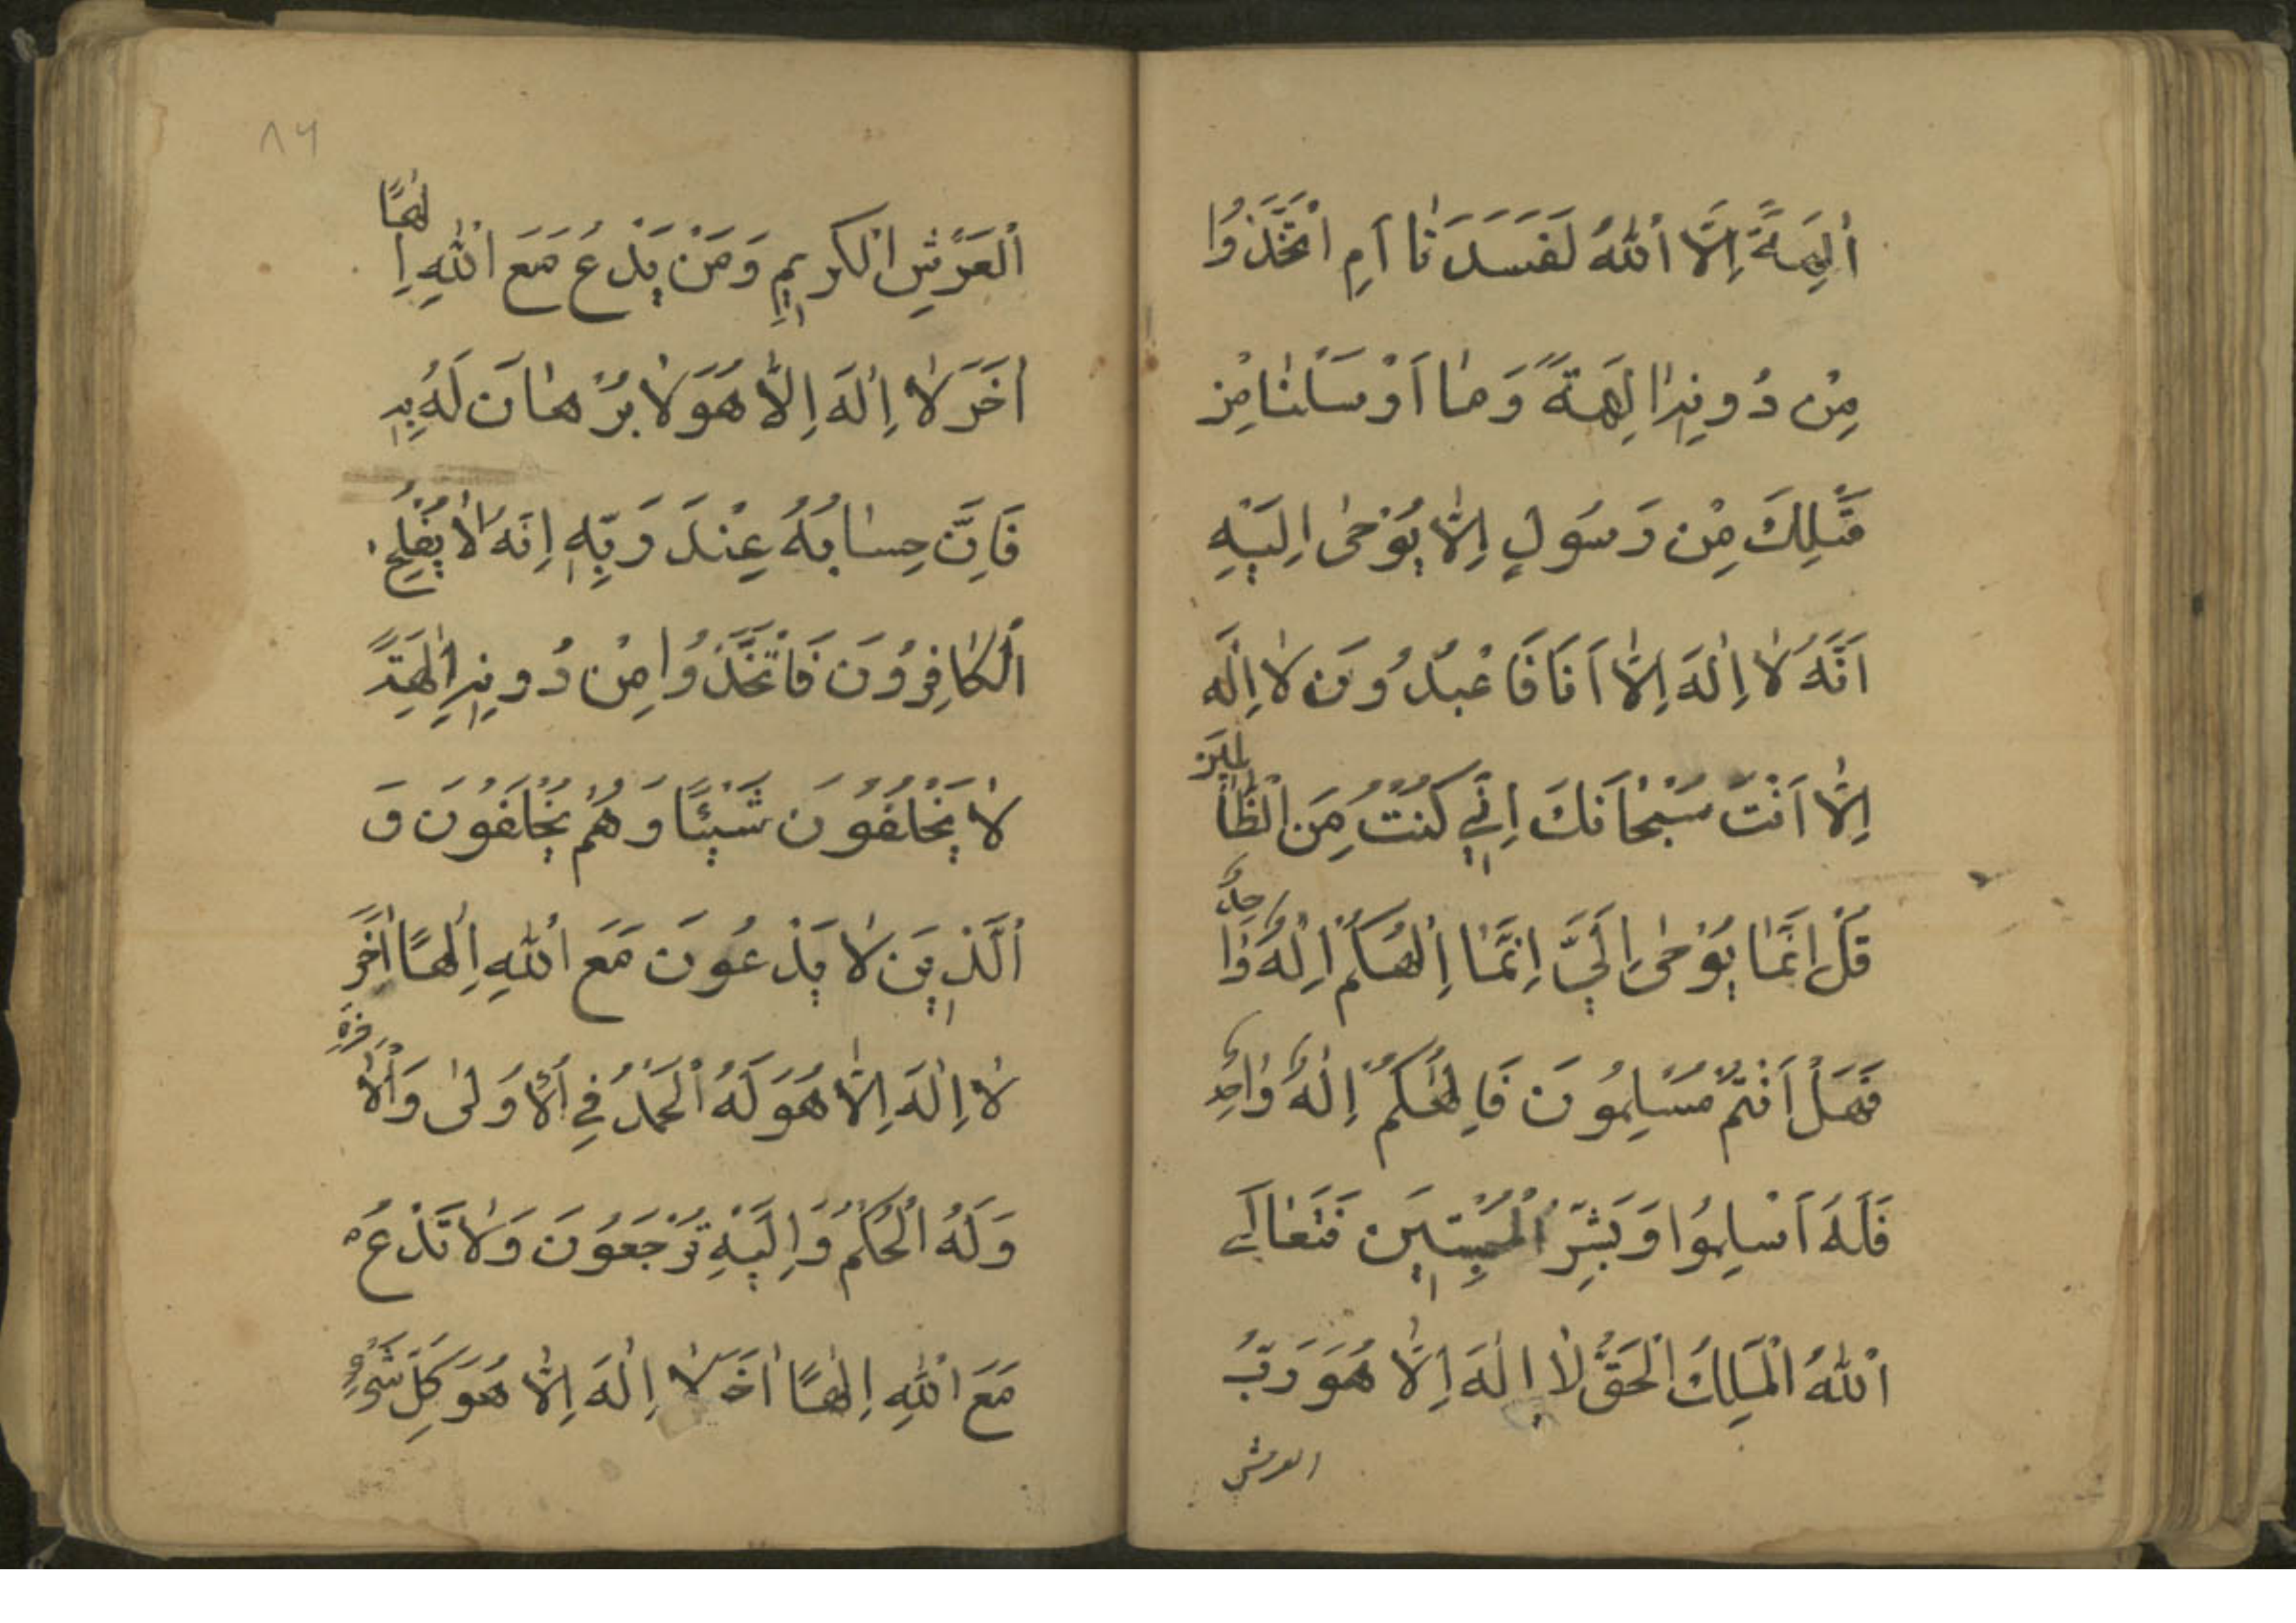 اٰلِهَةٌ اِلَّا اللّٰهُ لَفَسَدَتٰا اَمِ اتَّخَذُوا
مِنْ دُونِهِ اٰلِهَةً وَمٰا اَرْسَلْنٰا مِنْ
قَبْلِكَ مِنْ رَسُولٍ اِلّٰا يُوحٰى اِلَيْهِ
اَنَّهُ لٰا اِلٰهَ اِلّٰا اَنَا فَاعْبُدُونِ لٰا اِلٰهَ
اِلّٰا اَنْتَ سُبْحٰانَكَ اِنِّي كُنْتُ مِنَ الظّٰالِمِينَ
قُلْ اِنَّمٰا يُوحٰى اِلَيَّ اِنَّمٰا اِلٰهُكُمْ اِلٰهٌ وٰاحِدٌ
فَهَلْ اَنْتُمْ مُسْلِمُونَ فَاِلٰهُكُمْ اِلٰهٌ وٰاحِدٌ
فَلَهُ اَسْلِمُوا وَبَشِّرِ الْمُخْبِتِينَ فَتَعٰالَى
اللّٰهُ الْمَلِكُ الْحَقُّ لٰا اِلٰهَ اِلّٰا هُوَ رَبُّ
العرش
٨٦
الْعَرْشِ الْكَرِيمِ وَمَنْ يَدْعُ مَعَ اللّٰهِ اِلٰهًا
اٰخَرَ لٰا اِلٰهَ اِلّٰا هُوَ لٰا بُرْهٰانَ لَهُ بِهِ
فَاِنَّ حِسٰابُهُ عِنْدَ رَبِّهِ اِنَّهُ لٰا يُفْلِحُ
الْكٰافِرُونَ فَاتَّخَذُوا مِنْ دُونِهِ اٰلِهَةً
لٰا يَخْلُقُونَ شَيْئًا وَهُمْ يُخْلَقُونَ وَ
الَّذِينَ لٰا يَدْعُونَ مَعَ اللّٰهِ اِلٰهًا اٰخَرَ
لٰا اِلٰهَ اِلّٰا هُوَ لَهُ الْحَمْدُ فِي الْاُولٰى وَالْاٰخِرَةِ
وَلَهُ الْحُكْمُ وَاِلَيْهِ تُرْجَعُونَ وَلٰا تَدْعُ
مَعَ اللّٰهِ اِلٰهًا اٰخَرَ لٰا اِلٰهَ اِلّٰا هُوَ كُلُّ شَيْءٍ